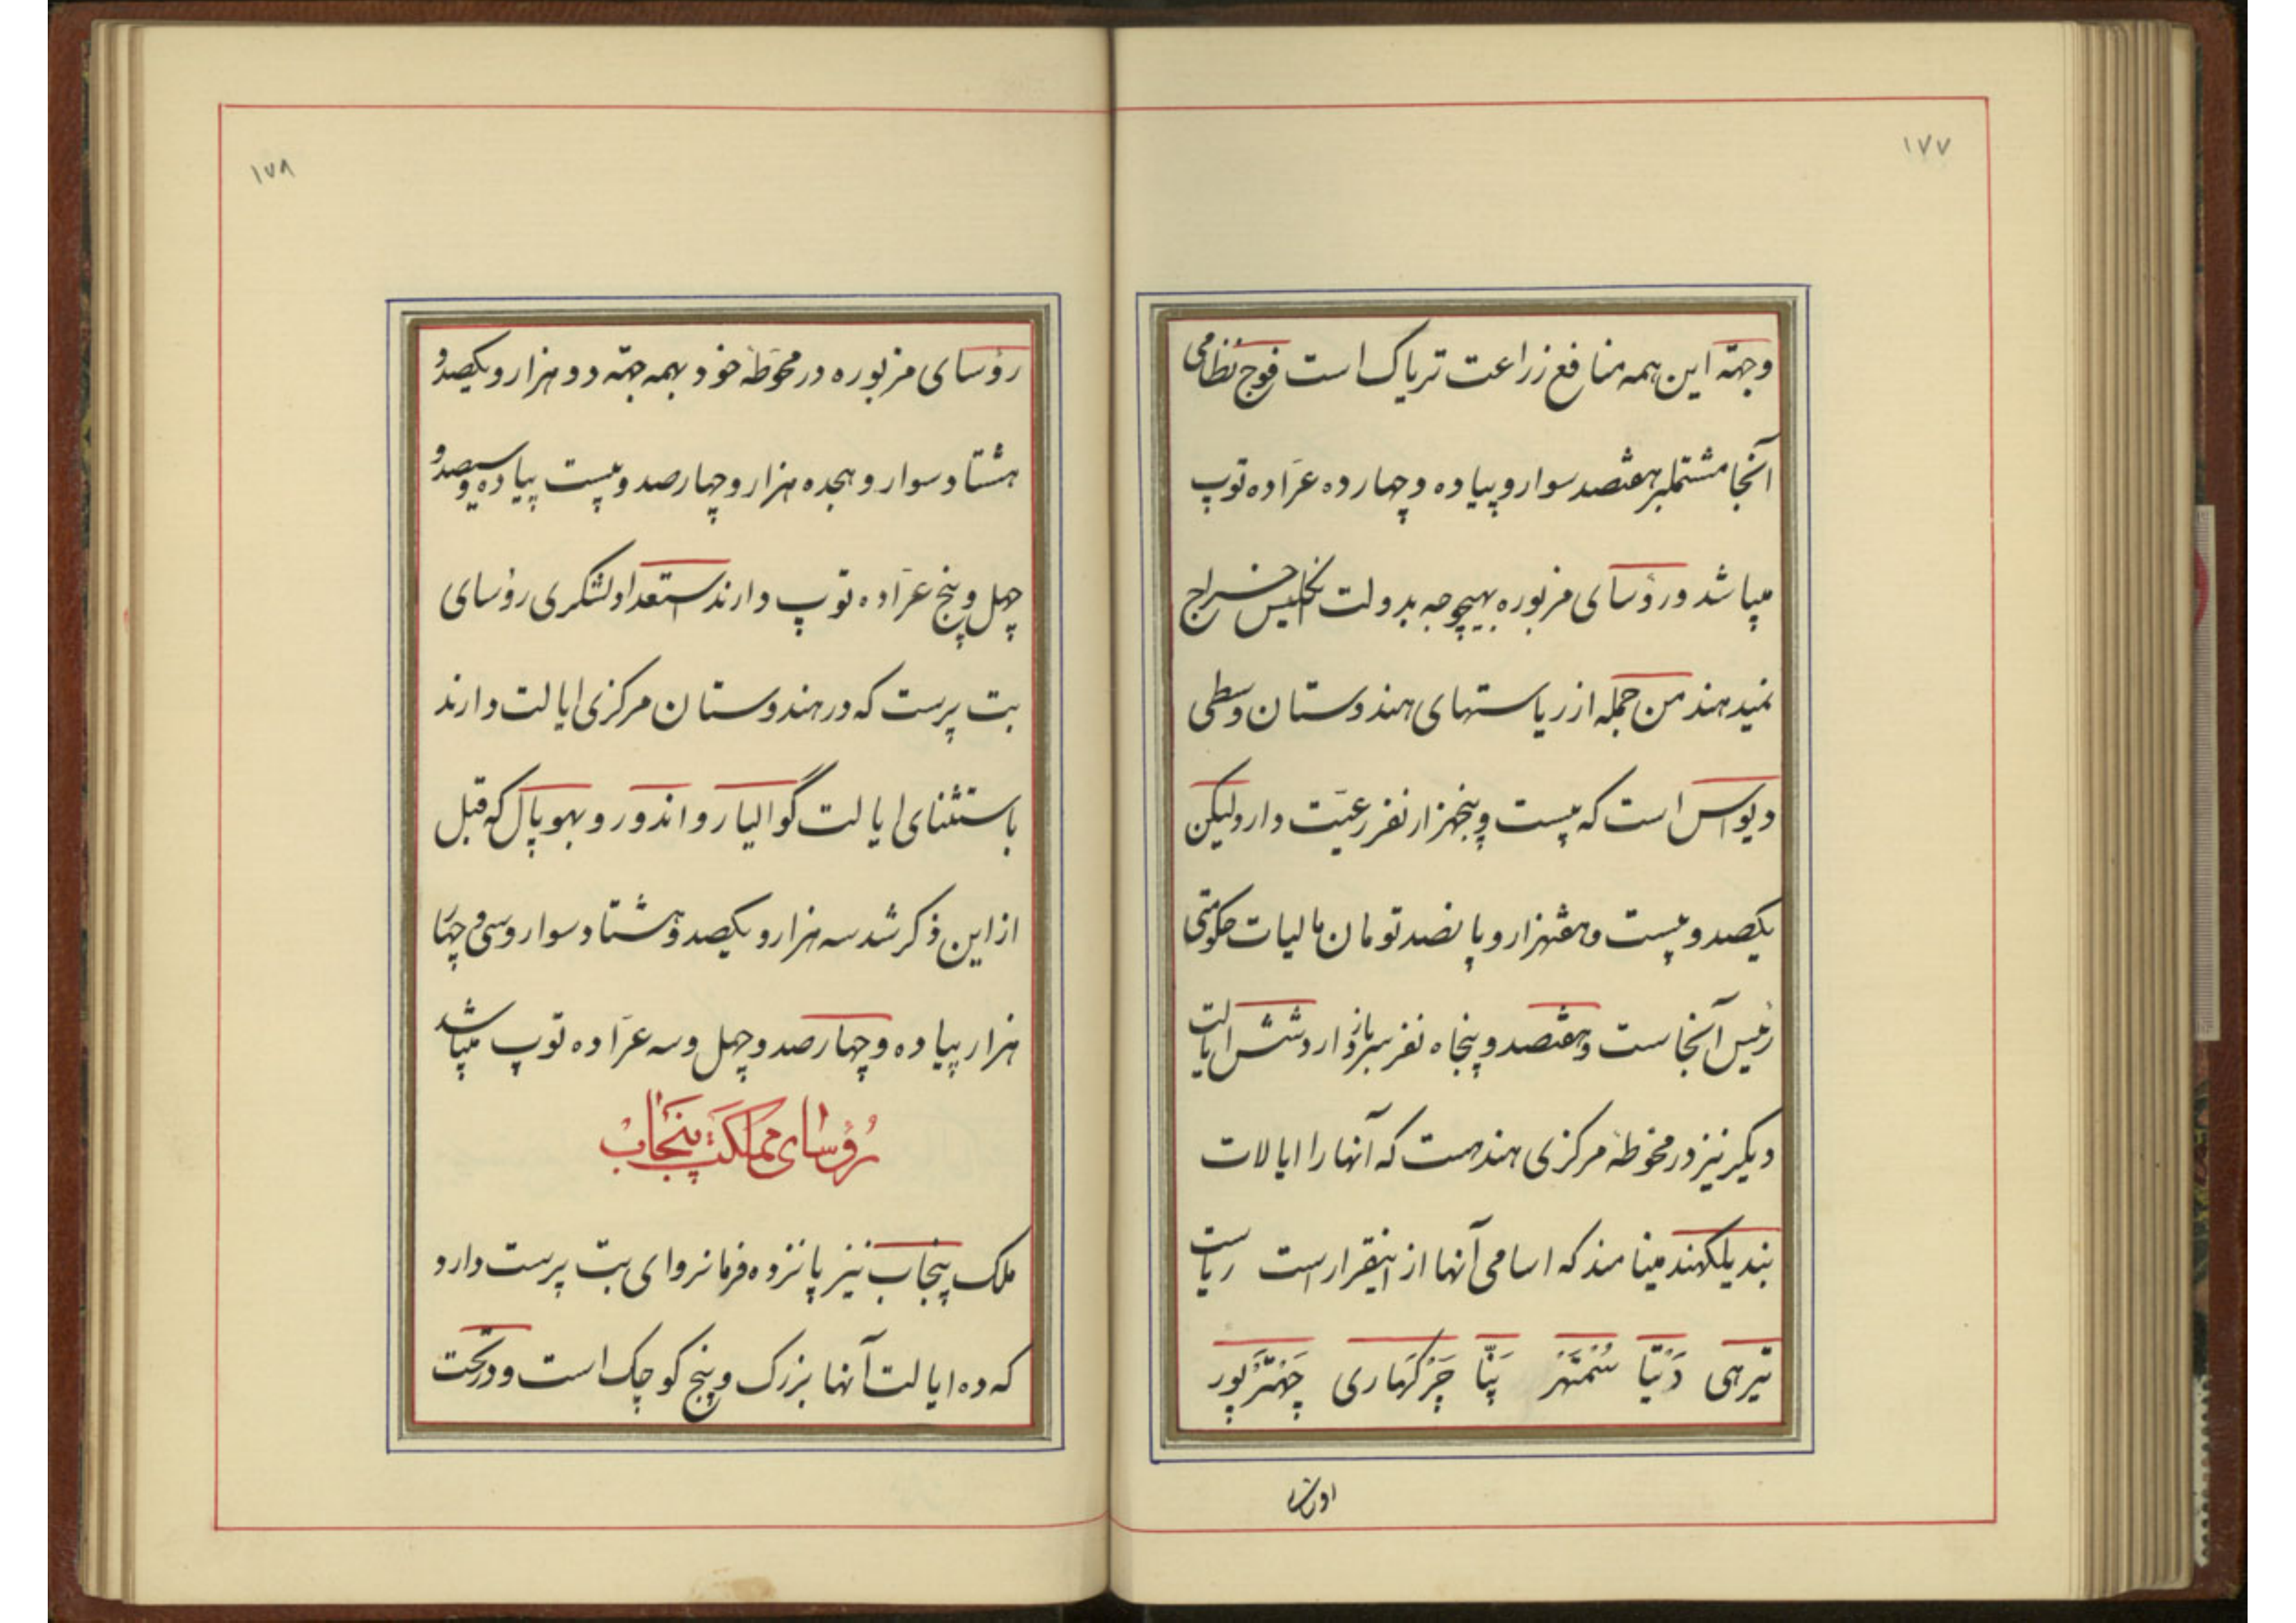 ۱۷۷
وجهّه این همه منافع زراعت تریاک است فوج نظامی
آنجا مشتملبر هفتصد سوار و پیاده و چهارده عرّاده توپ
میباشد و رؤسای مزبوره بهیچوجه بدولت انگلیس خراج
نمیدهند من جمله از ریاستهای هندوستان وسطی
دیواس است که بیست و پنجهزار نفر رعیّت دارد لیکن
یکصد و بیست و هفتهزار و پانصد تومان مالیات حکومتی
رئیس آنجاست و هفتصد و پنجاه نفر سرباز دارد شش ایالت
دیکر نیز در محوطهٔ مرکزی هند هست که آنها را ایالات
بندیلکهند مینامند که اسامی آنها از اینقرار است ریاست
تیرهی دَتْیا سُمتَهْر پَنّا چَرْکَهاری چَهتَرْپور
۱۷۸
رؤسای مزبوره در محوّطهٔ خود بهمه جهّه دو هزار و یکصد و
هشتاد سوار و هجده هزار و چهارصد و بیست پیاده و سیصد و
چهل و پنج عرّاده توپ دارند استعداد لشکری رؤسای
بت پرست که در هندوستان مرکزی ایالت دارند
باستثنای ایالت گوالیار و اندور و بهوپال که قبل
از این ذکر شد سه هزار و یکصد و هشتاد سوار و سی و چهار
هزار پیاده و چهارصد و چهل و سه عرّاده توپ میباشد
رؤسای مملکت پنجاب
ملک پنجاب نیز پانزده فرمانروای بت پرست دارد
که ده ایالت آنها بزرک و پنج کوچک است و در تحت